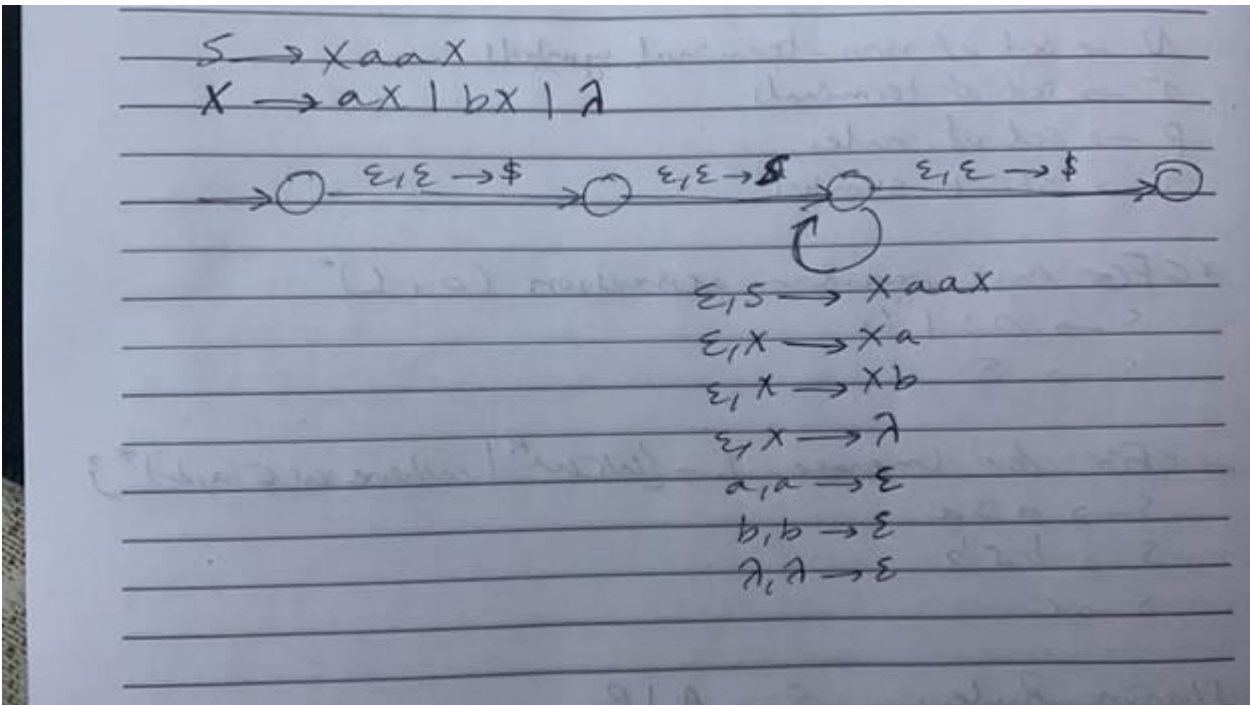 S → XaaX
X → aX | bX | λ
ε,ε → $ ε,ε → S ε,ε → $
ε,S → XaaX
ε,X → Xa
ε,X → Xb
ε,X → λ
a,a → ε
b,b → ε
λ,λ → ε